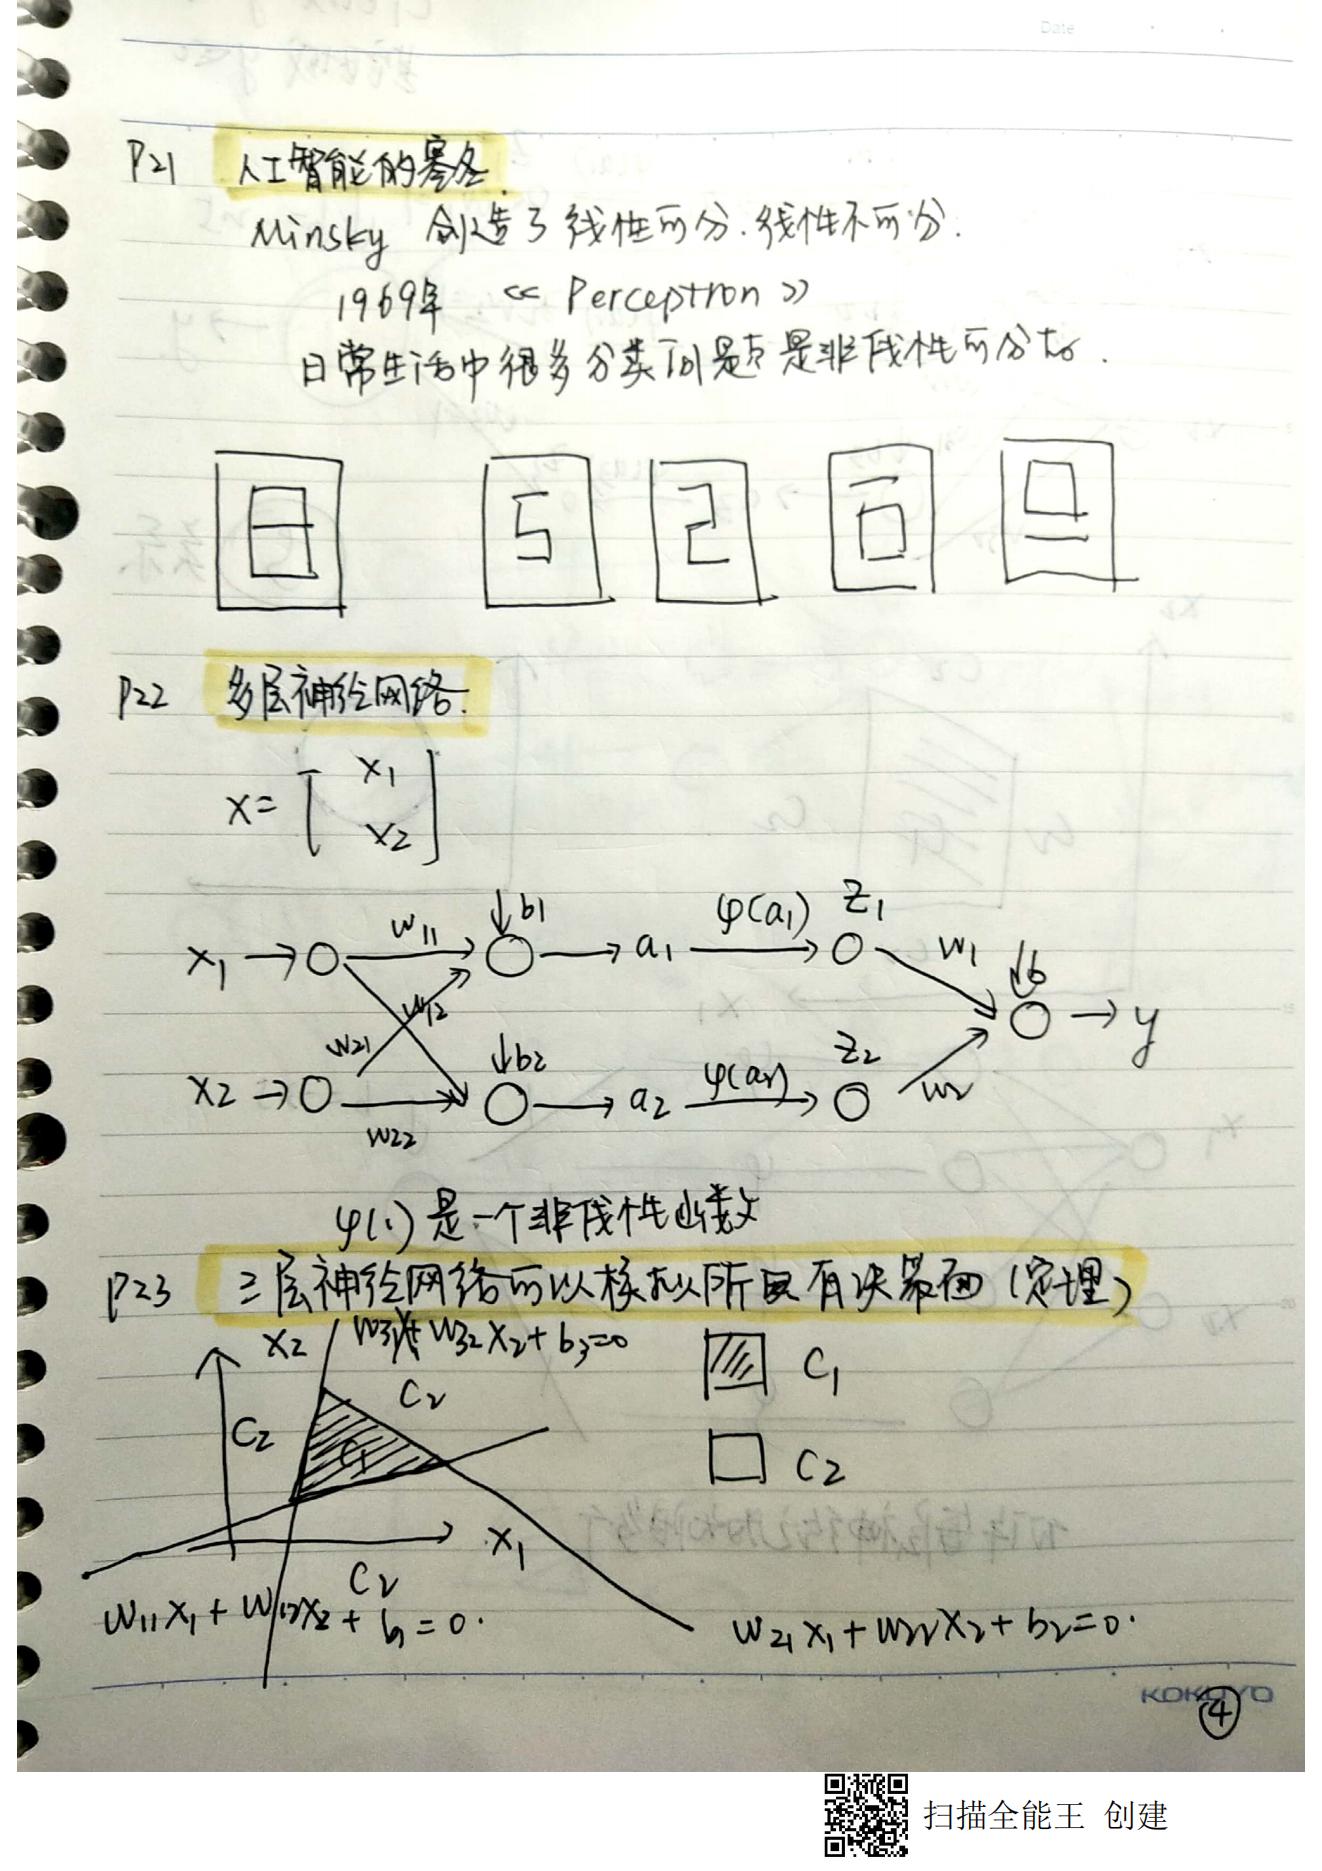 Date
P21 人工智能的寒冬.
Minsky 创造了线性可分.线性不可分.
1969年 << Perceptron >>
日常生活中很多分类问题是非线性可分的.
P22 多层神经网络.
x = [ x1
x2 ]
x1 → w11 ↓b1 → a1 φ(a1) z1 w1 ↓b → y
w12
w21
x2 → w22 ↓b2 → a2 φ(a2) z2 w2
φ(·)是一个非线性函数
P23 三层神经网络可以模拟所有决策面(定理)
x2 w31x1+w32x2+b3=0
C1
C2
C2
C1
C2
x1
C2
w11x1+w12x2+b1=0.
w21x1+w22x2+b2=0.
KOKUYO
④
扫描全能王 创建